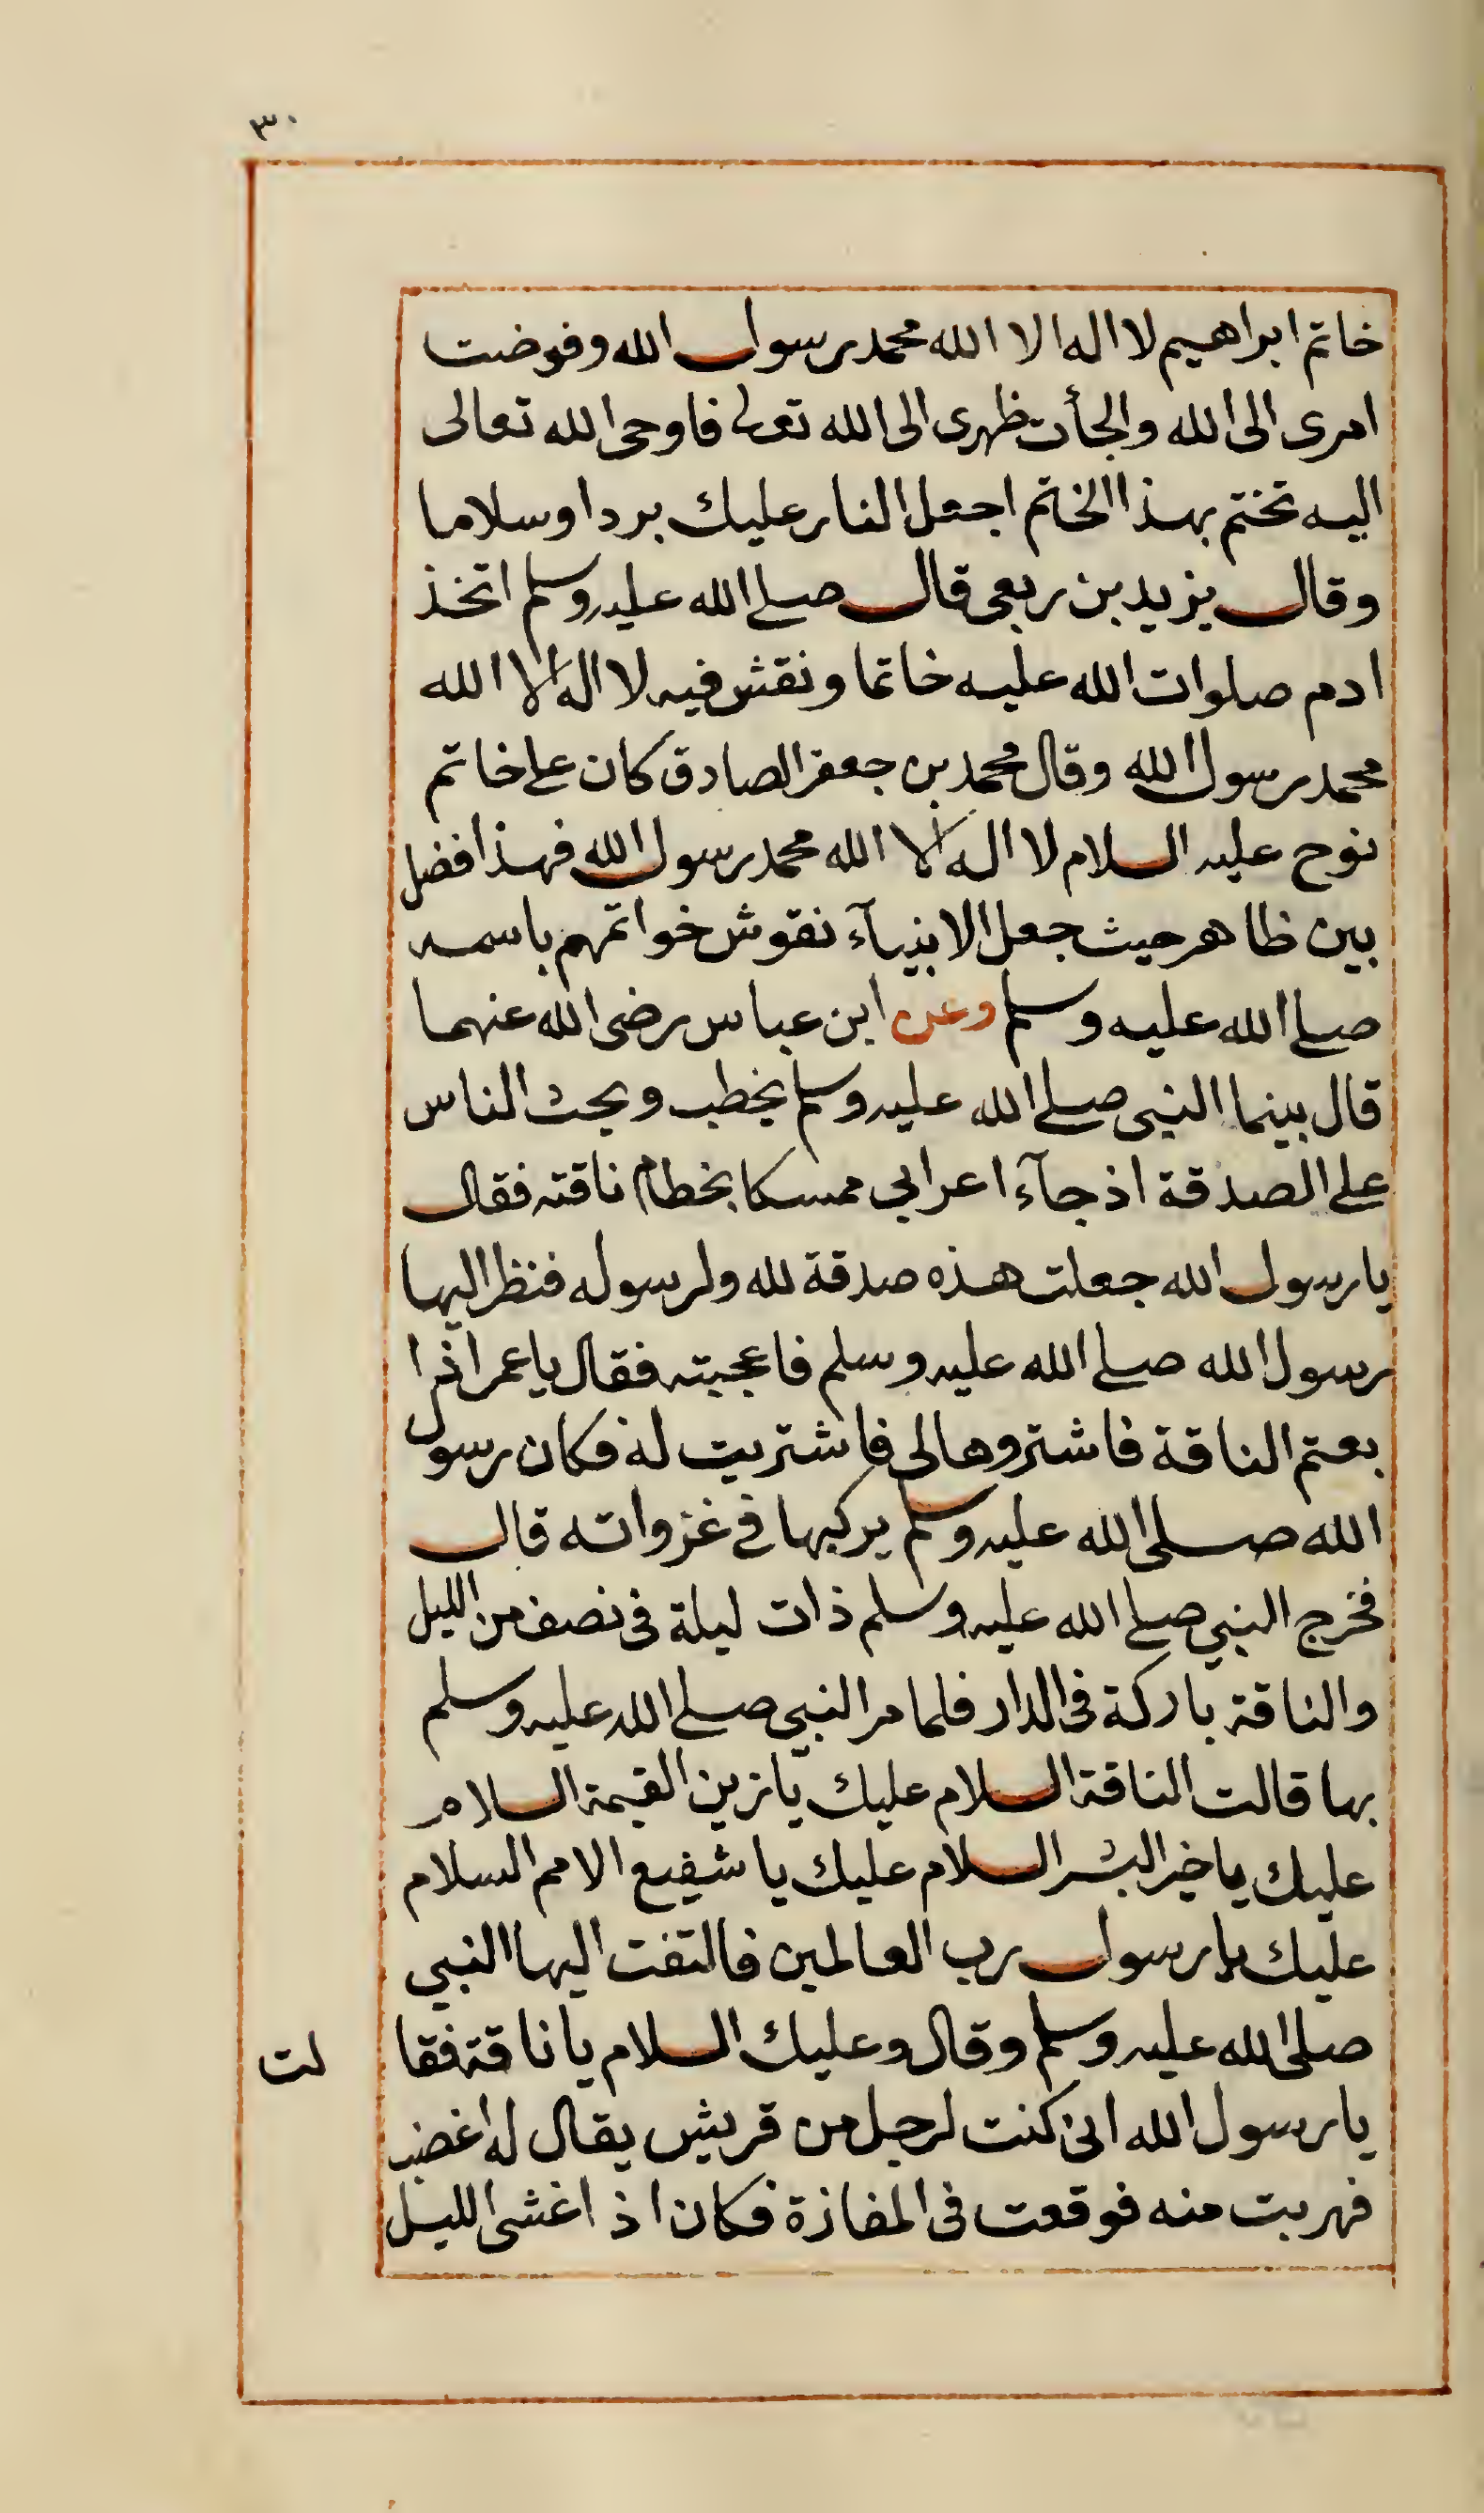 ٣٠
خاتم ابراهيم لا اله الا الله محمد رسول الله وفوضت
امرى الى الله والجأت ظهرى الى الله تعالى فاوحى الله تعالى
اليه تختم بهذا الخاتم اجعل النار عليك بردا وسلاما
وقال يزيد بن ربعى قال صلى الله عليه وسلم اتخذ
ادم صلوات الله عليه خاتما ونقش فيه لا اله الا الله
محمد رسول الله وقال محمد بن جعفر الصادق كان على خاتم
نوح عليه السلام لا اله الا الله محمد رسول الله فهذا فضل
بين ظاهر حيث جعل الانبيآء نقوش خواتمهم باسمه
صلى الله عليه وسلم وعن ابن عباس رضى الله عنهما
قال بينما النبى صلى الله عليه وسلم يخطب ويحث الناس
على الصدقة اذ جآء اعرابي ممسكا بخطام ناقته فقال
يا رسول الله جعلت هذه صدقة لله ولرسوله فنظر اليها
رسول الله صلى الله عليه وسلم فاعجبته فقال يا عمر اذا
بعتم الناقة فاشتروها لى فاشتريت له فكان رسول
الله صلى الله عليه وسلم يركبها فى غزواته قال
فخرج النبي صلى الله عليه وسلم ذات ليلة فى نصف من الليل
والناقة باركة فى الدار فلما مر النبي صلى الله عليه وسلم
بها قالت الناقة السلام عليك يا زين القيمة السلام
عليك يا خير البشر السلام عليك يا شفيع الامم السلام
عليك يا رسول رب العالمين فالتفت اليها النبي
صلى الله عليه وسلم وقال وعليك السلام يا ناقة فقا لت
يا رسول الله انى كنت لرجل من قريش يقال له اغضب
فهربت منه فوقعت فى المفازة فكان اذ اغشى الليل